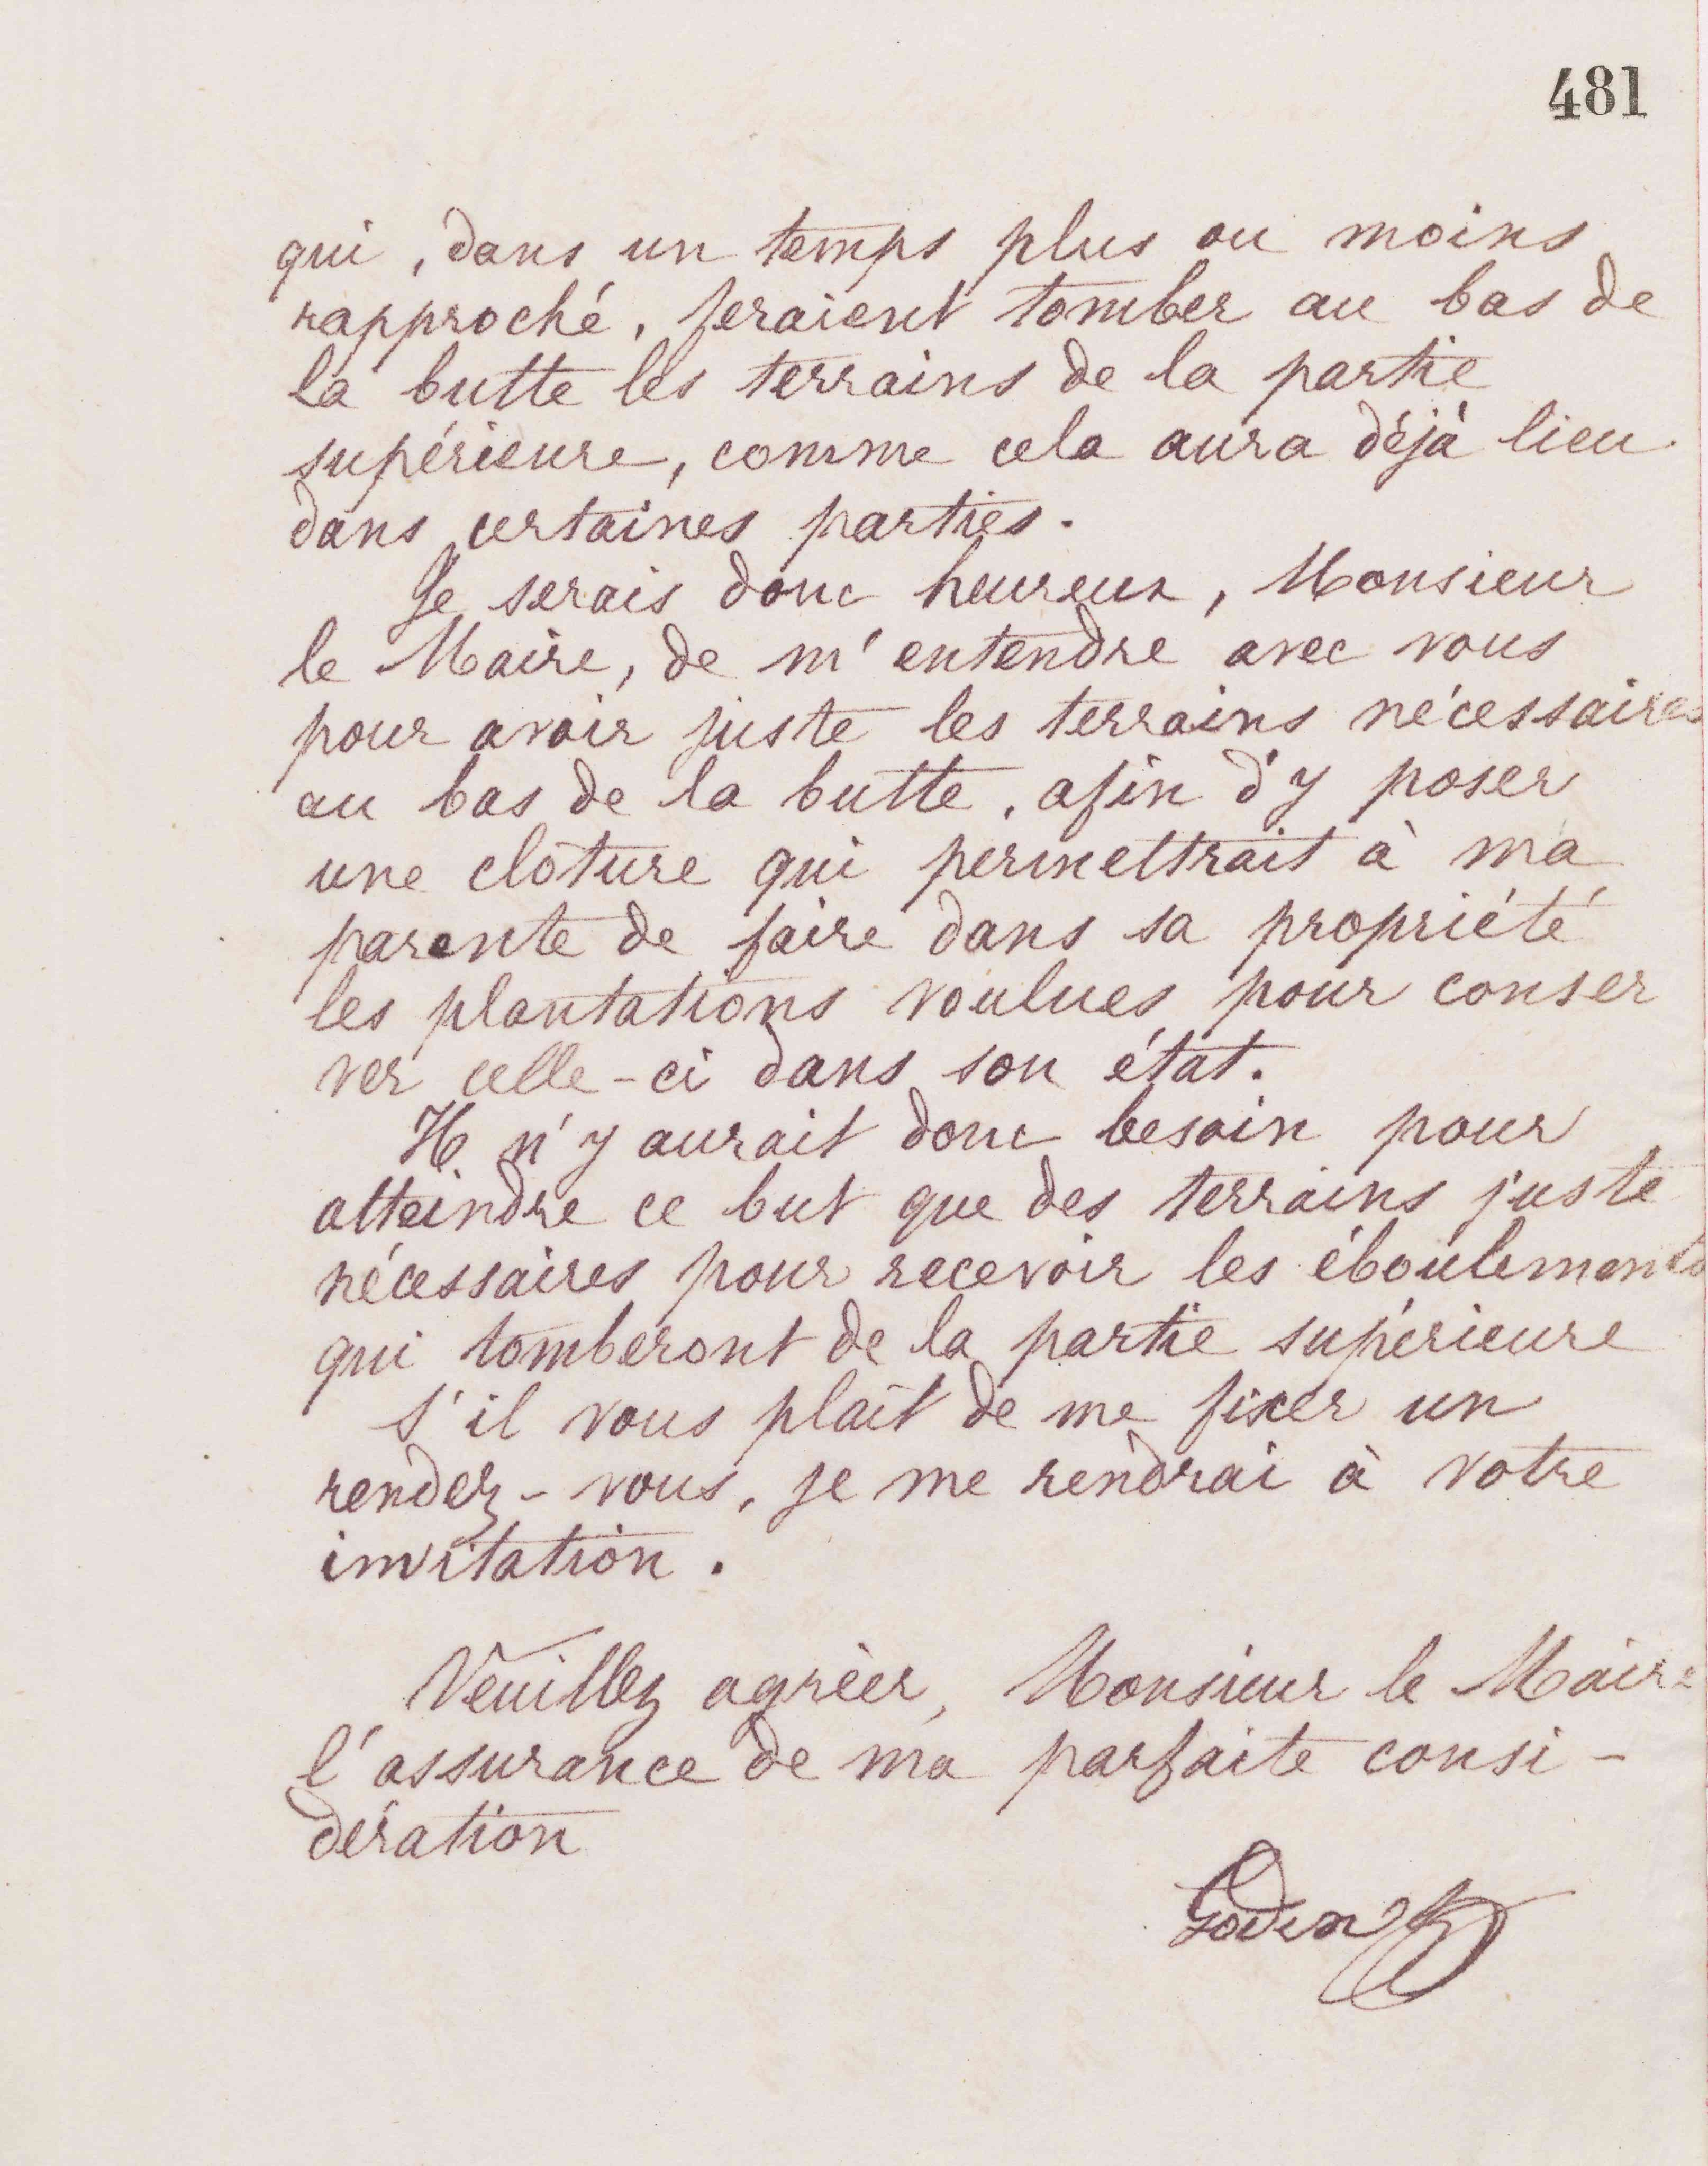 481
qui, dans un temps plus ou moins
rapproché, feraient tomber au bas de
la butte les terrains de la partie
supérieure, comme cela aura déjà lieu
dans certaines parties.
Je serais donc heureux, Monsieur
le Maire, de m'entendre avec vous
pour avoir juste les terrains nécessaires
au bas de la butte, afin d'y poser
une cloture qui permettrait à ma
parente de faire dans sa propriété
les plantations voulues pour conser
ver celle-ci dans son état.
Il n'y aurait donc besoin pour
atteindre ce but que des terrains juste
nécessaires pour recevoir les éboulements
qui tomberont de la partie supérieure
S'il vous plaît de me fixer un
rendez-vous, je me rendrai à votre
invitation.
Veuillez agréer, Monsieur le Maire
l'assurance de ma parfaite consi-
dération
Godin